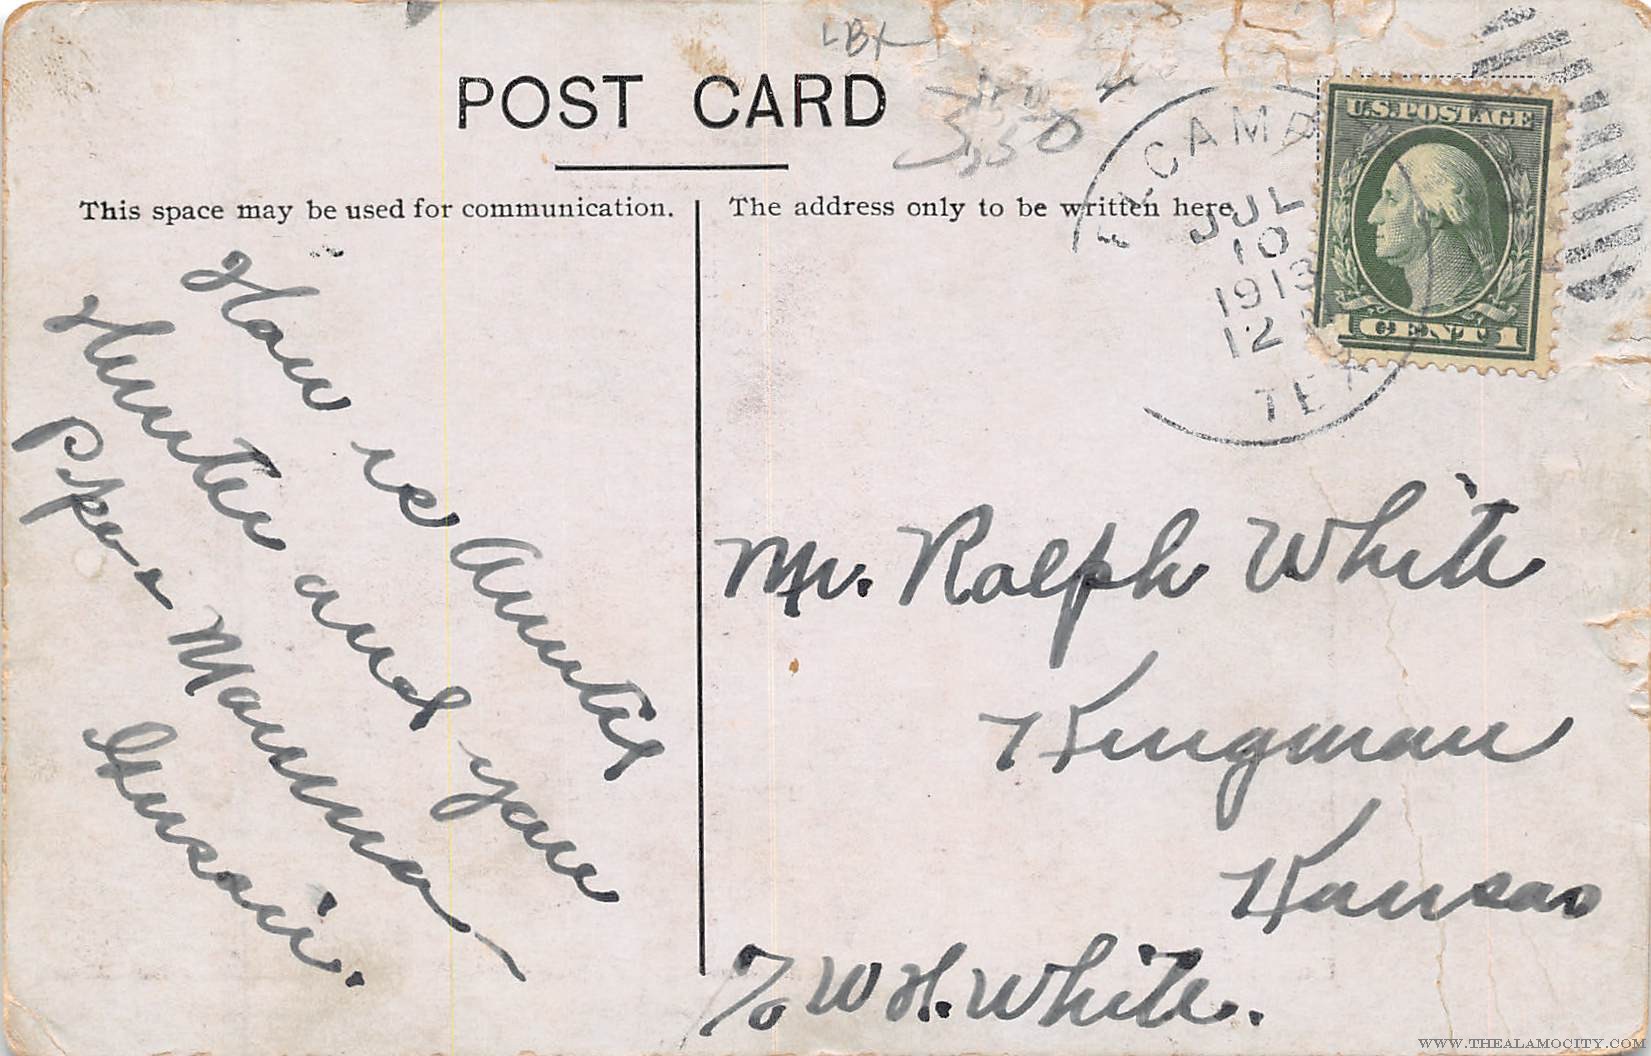 LBX
POST CARD
3.50
This space may be used for communication.
The address only to be written here.
EL CAMPO
JUL
10
1913
12
TEX
U.S. POSTAGE
1 CENT 1
How is Auntie
Hunter and your
Papa & Mamma
Mr. Ralph White
Kingman
Kansas
c/o W.H. White.
WWW.THEALAMOCITY.COM